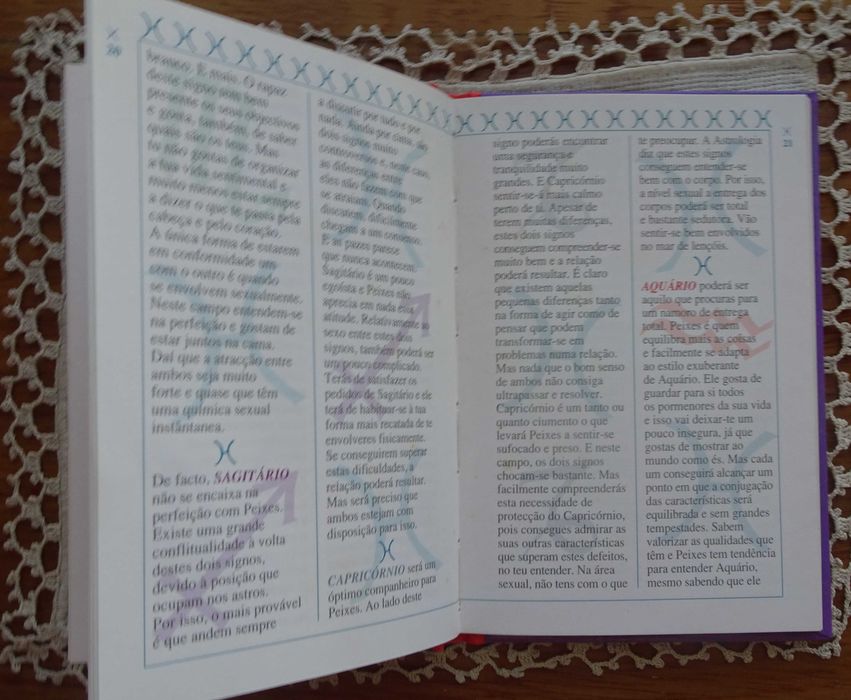 20
branco. E mais. O rapaz
deste signo tem bem
presente os seus objectivos
e gosta, também, de saber
quais são os teus. Mas
tu não gostas de organizar
a tua vida sentimental e
muito menos estar sempre
a dizer o que te passa pela
cabeça e pelo coração.
A única forma de estarem
em conformidade um
com o outro é quando
se envolvem sexualmente.
Neste campo entendem-se
na perfeição e gostam de
estar juntos na cama.
Daí que a atracção entre
ambos seja muito
forte e quase que têm
uma química sexual
instantanea.
De facto, SAGITÁRIO
não se encaixa na
perfeição com Peixes.
Existe uma grande
conflitualidade à volta
destes dois signos,
devido à posição que
ocupam nos astros.
Por isso, o mais provável
é que andem sempre
a discutir por tudo e por
nada. Ainda por cima, são
dois signos muito
controversos e, neste caso,
as diferenças entre
eles não fazem com que
se atraiam. Quando
discutem, dificilmente
chegam a um consenso.
E as pazes parece
que nunca acontecem.
Sagitário é um pouco
egoísta e Peixes não
aprecia em nada esta
atitude. Relativamente ao
sexo entre estes dois
signos, também poderá ser
um pouco complicado.
Terás de satisfazer os
pedidos de Sagitário e ele
terá de habituar-se à tua
forma mais recatada de te
envolveres fisicamente.
Se conseguirem superar
estas dificuldades, a
relação poderá resultar.
Mas será preciso que
ambos estejam com
disposição para isso.
CAPRICÓRNIO será um
óptimo companheiro para
Peixes. Ao lado deste
21
signo poderás encontrar
uma segurança e
tranquilidade muito
grandes. E Capricórnio
sentir-se-á mais calmo
perto de ti. Apesar de
terem muitas diferenças,
estes dois signos
conseguem compreender-se
muito bem e a relação
poderá resultar. É claro
que existem aquelas
pequenas diferenças tanto
na forma de agir como de
pensar que podem
transformar-se em
problemas numa relação.
Mas nada que o bom senso
de ambos não consiga
ultrapassar e resolver.
Capricórnio é um tanto ou
quanto ciumento o que
levará Peixes a sentir-se
sufocado e preso. E neste
campo, os dois signos
chocam-se bastante. Mas
facilmente compreenderás
esta necessidade de
protecção do Capricórnio,
pois consegues admirar as
suas outras características
que superam estes defeitos,
no teu entender. Na área
sexual, não tens com o que
te preocupar. A Astrologia
diz que estes signos
conseguem entender-se
bem com o corpo. Por isso,
a nível sexual a entrega dos
corpos poderá ser total
e bastante sedutora. Vão
sentir-se bem envolvidos
no mar de lençóis.
AQUÁRIO poderá ser
aquilo que procuras para
um namoro de entrega
total. Peixes é quem
equilibra mais as coisas
e facilmente se adapta
ao estilo exuberante
de Aquário. Ele gosta de
guardar para si todos
os pormenores da sua vida
e isso vai deixar-te um
pouco insegura, já que
gostas de mostrar ao
mundo como és. Mas cada
um conseguirá alcançar um
ponto em que a conjugação
das características será
equilibrada e sem grandes
tempestades. Sabem
valorizar as qualidades que
têm e Peixes tem tendência
para entender Aquário,
mesmo sabendo que ele